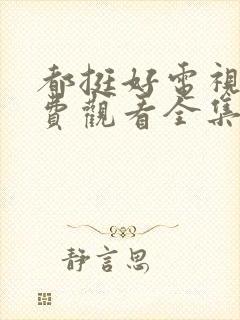 都挺好電視
費觀看全集
靜言思